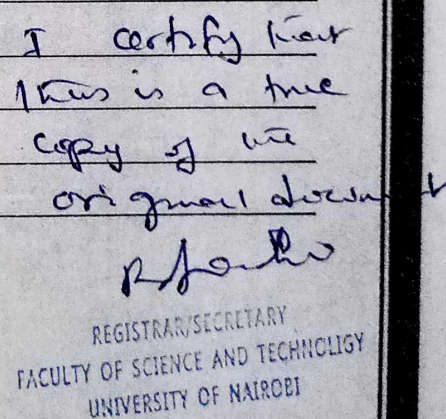 I certify that
this is a true
copy of the
original document
REGISTRAR/SECRETARY
FACULTY OF SCIENCE AND TECHNOLIGY
UNIVERSITY OF NAIROBI